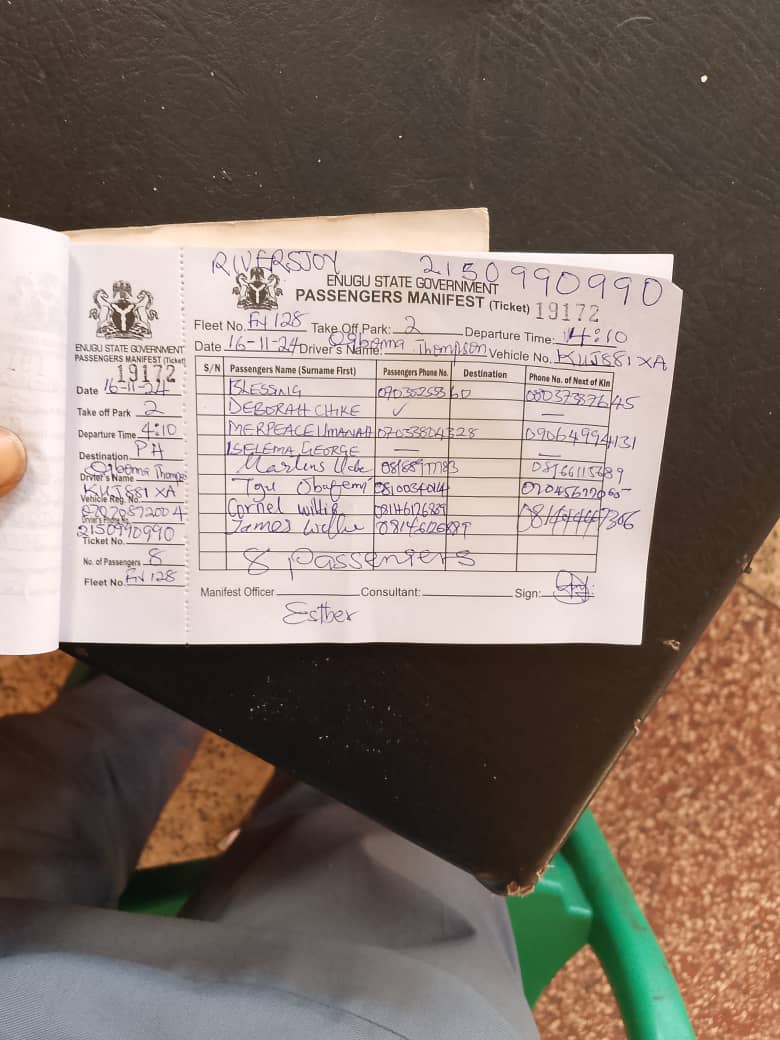 ENUGU STATE GOVERNMENT
PASSENGERS MANIFEST (Ticket)
19172
Date 16-11-24
Take off Park 2
Departure Time 4:10
Destination PH
Driver's Name Ogbonna
Vehicle Reg. No. KUJ881 XA
Driver's Phone No. 07070872004
2150990990
Ticket No.
No. of Passengers 8
Fleet No. FN 128
RIVERSJOY 2150990990
ENUGU STATE GOVERNMENT
PASSENGERS MANIFEST (Ticket) 19172
Fleet No. FN 128 Take Off Park: 2 Departure Time: 4:10
Date 16-11-24 Driver's Name: Ogbonna Thompson Vehicle No. KUJ881 XA
S/N Passengers Name (Surname First) Passengers Phone No. Destination Phone No. of Next of Kin
BLESSING
DEBORAH CHIKE ✓ —
MERPEACE UMANAH 07053804328 09064994131
ISELEMA GEORGE — —
Martins 08166115689
08100340144
Cornel 08146126889
James 08146126889
8 passengers
Manifest Officer Consultant: Sign:
Esther